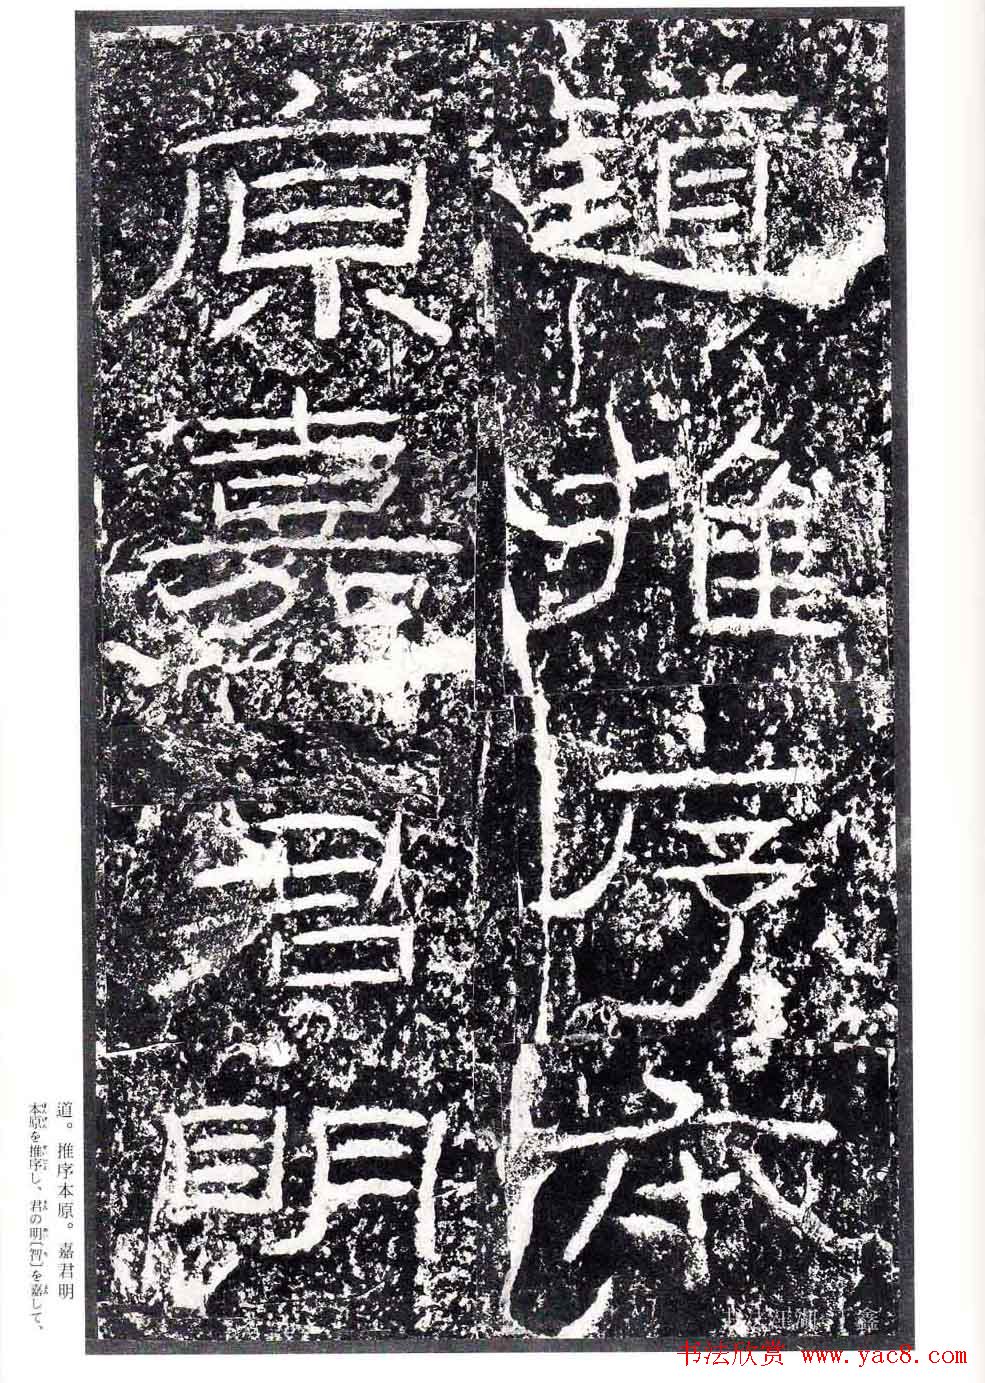 道推序本
原嘉君明
道。推序本原。嘉君明
本原を推序し、君の明〔智〕を嘉して、
书法欣赏 www.yac8.com